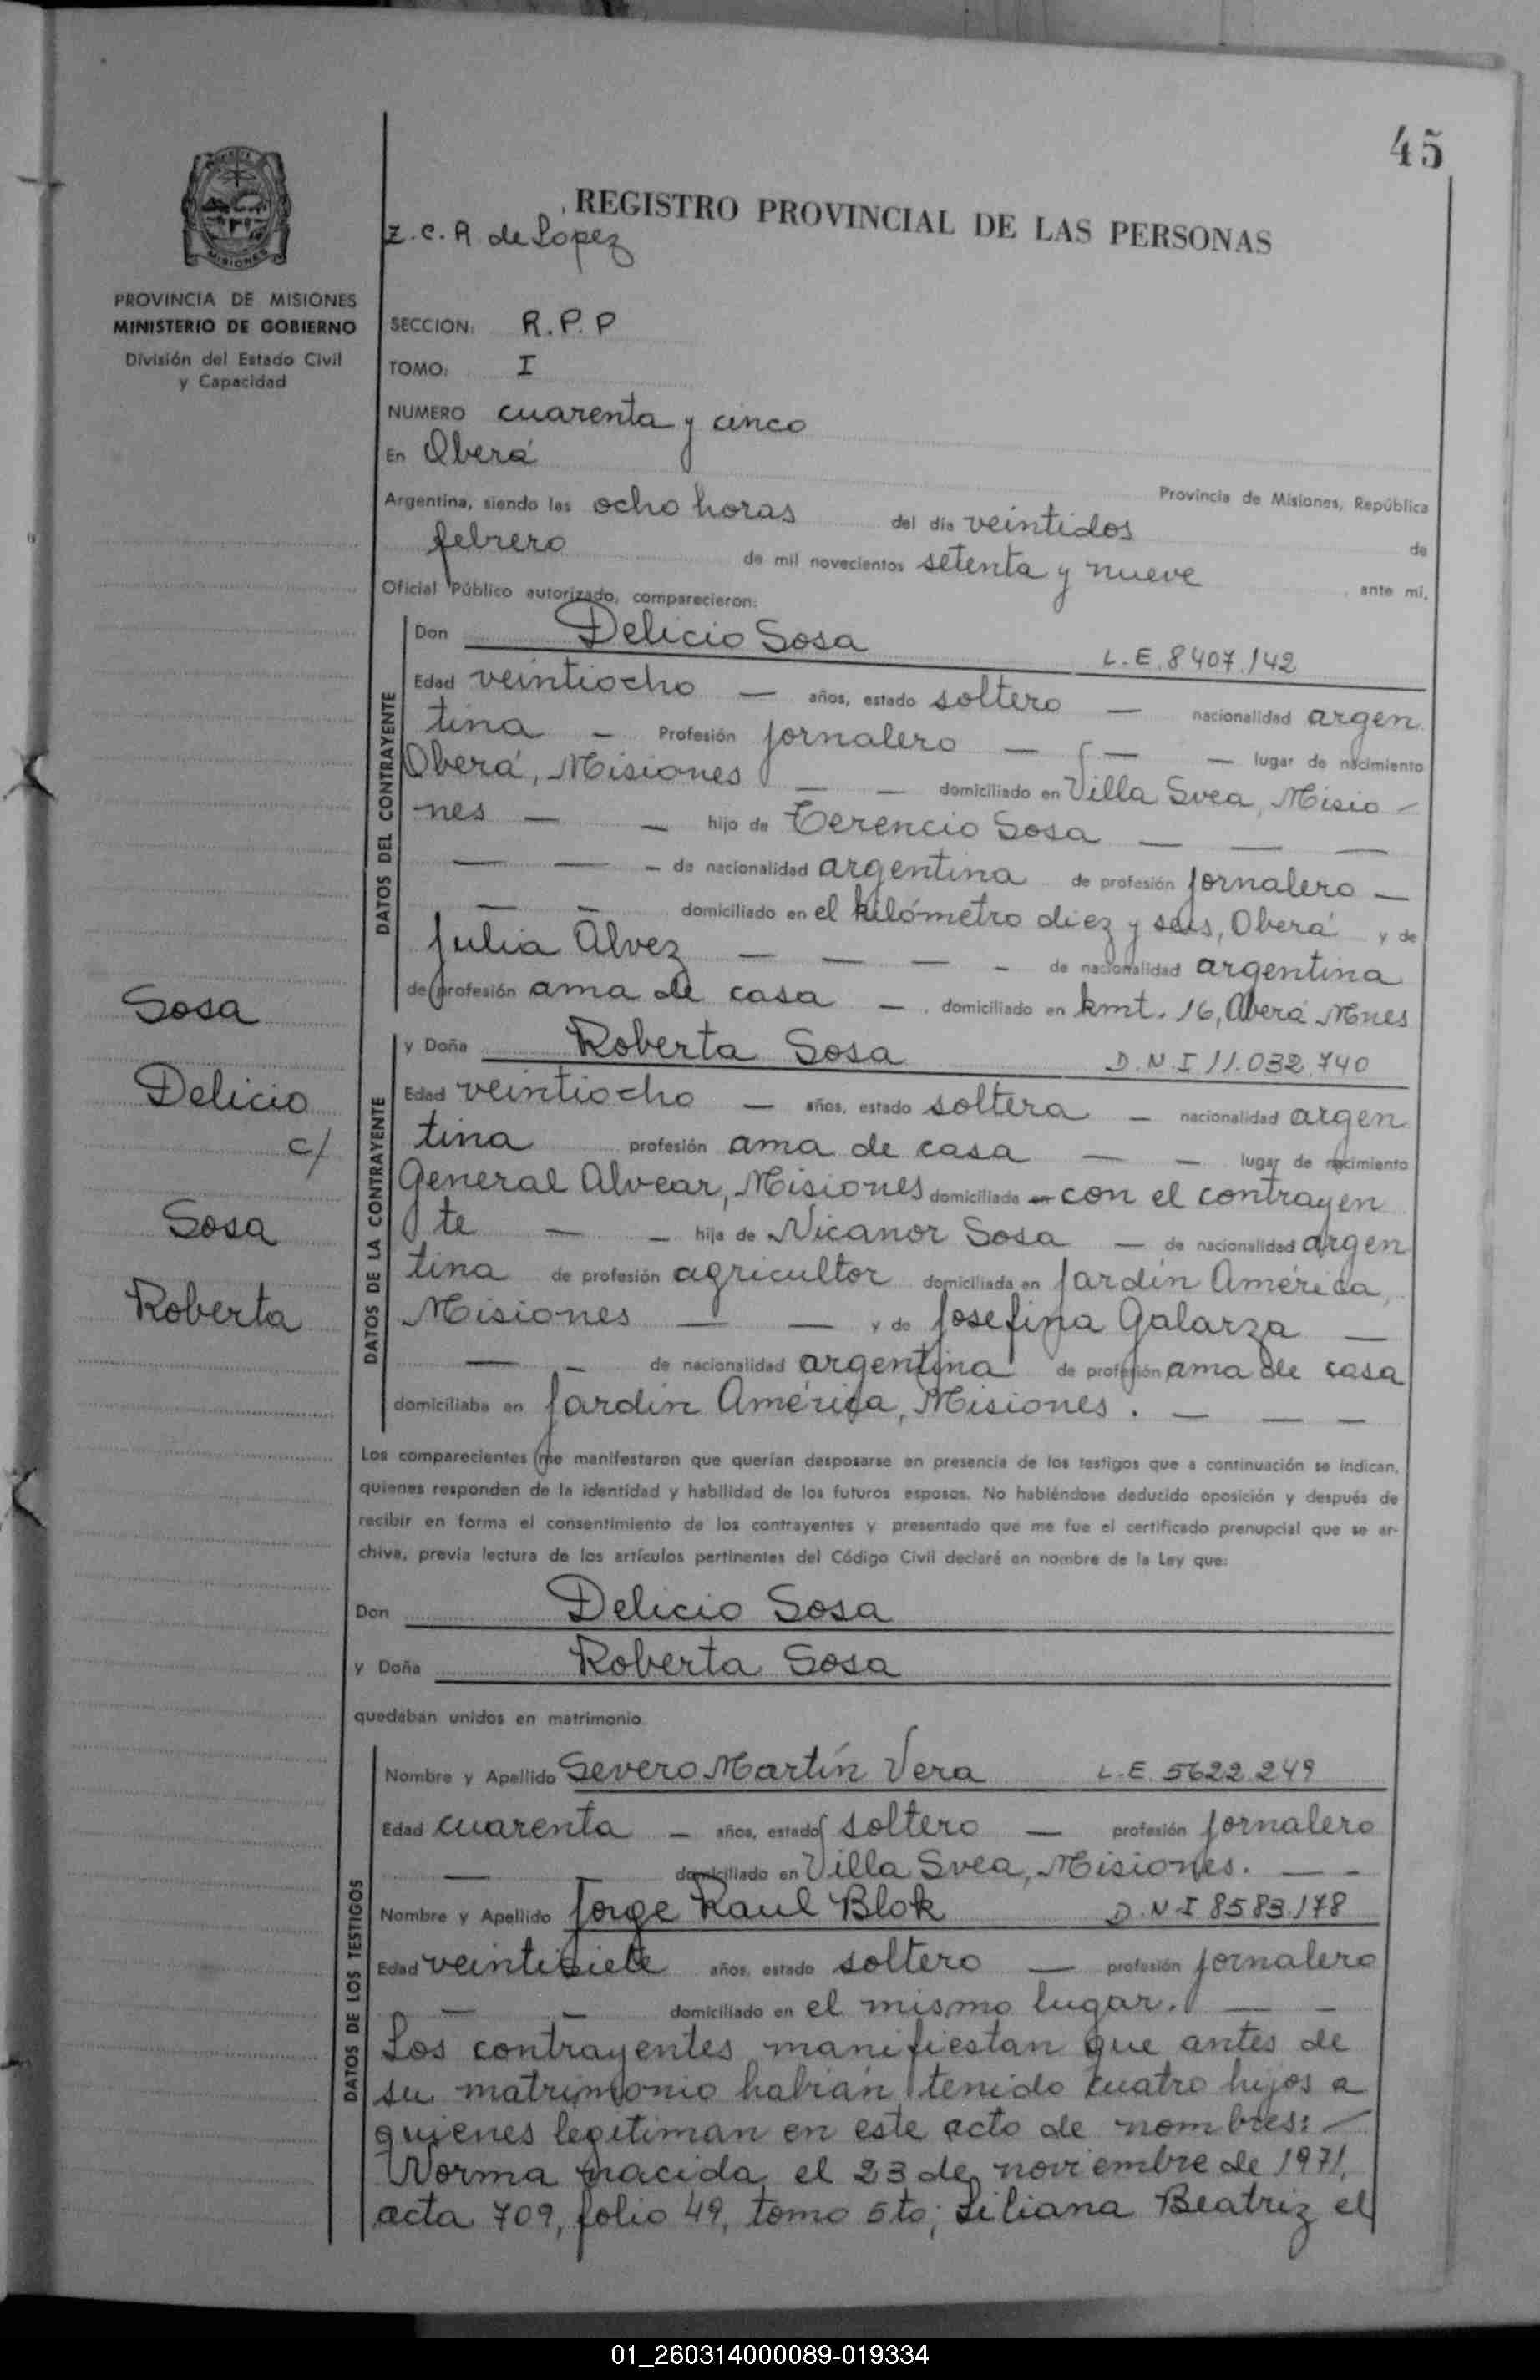 45
REGISTRO PROVINCIAL DE LAS PERSONAS
Z. C. R. de Lopez
MISIONES
PROVINCIA DE MISIONES
MINISTERIO DE GOBIERNO
División del Estado Civil
y Capacidad
SECCION: R.P.P
TOMO: I
NUMERO cuarenta y cinco
En Oberá
Provincia de Misiones, República
Argentina, siendo las ocho horas del día veintidos de
febrero de mil novecientos setenta y nueve ante mi,
Oficial Público autorizado, comparecieron:
DATOS DEL CONTRAYENTE
Don Delicio Sosa L.E. 8407.142
Edad veintiocho — años, estado soltero — nacionalidad argen
tina — Profesión jornalero — — — lugar de nacimiento
Oberá, Misiones — — domiciliado en Villa Svea, Misio –
nes — — hijo de Terencio Sosa — — —
— — – de nacionalidad argentina de profesión jornalero —
— – domiciliado en el kilómetro diez y seis, Oberá y de
Julia Alvez — — — – de nacionalidad argentina
de profesión ama de casa – domiciliado en kmt. 16, Oberá Mnes
Sosa
Delicio
c/
Sosa
Roberta
DATOS DE LA CONTRAYENTE
y Doña Roberta Sosa D.N.I 11.032.740
Edad veintiocho — años, estado soltera – nacionalidad argen
tina profesión ama de casa — – lugar de nacimiento
General Alvear, Misiones domiciliada en con el contrayen
te — – hija de Nicanor Sosa — de nacionalidad argen
tina de profesión agricultor domiciliada en Jardín América,
Misiones — — y de Josefina Galarza —
— – de nacionalidad argentina de profesión ama de casa
domiciliaba en Jardín América, Misiones. — — –
Los comparecientes me manifestaron que querían desposarse en presencia de los testigos que a continuación se indican,
quienes responden de la identidad y habilidad de los futuros esposos. No habiéndose deducido oposición y después de
recibir en forma el consentimiento de los contrayentes y presentado que me fue el certificado prenupcial que se ar-
chiva, previa lectura de los artículos pertinentes del Código Civil declaré en nombre de la Ley que:
Don Delicio Sosa
y Doña Roberta Sosa
quedaban unidos en matrimonio
DATOS DE LOS TESTIGOS
Nombre y Apellido Severo Martín Vera L.E. 5622.249
Edad cuarenta – años, estado soltero — profesión jornalero
— domiciliado en Villa Svea, Misiones. — –
Nombre y Apellido Jorge Raul Blok D.N.I 8583.178
Edad veintisiete años, estado soltero — profesión jornalero
— – domiciliado en el mismo lugar. — –
Los contrayentes manifiestan que antes de
su matrimonio habían tenido cuatro hijos a
quienes legitiman en este acto de nombres: –
Norma nacida el 23 de noviembre de 1971,
acta 709, folio 49, tomo 5to; Liliana Beatriz el
01_260314000089-019334